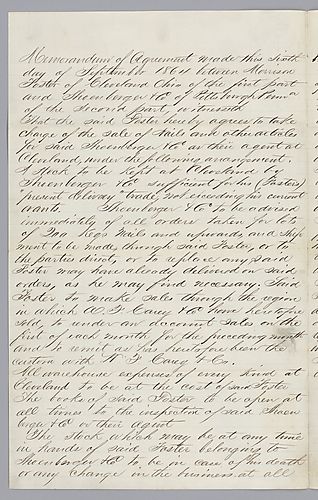 Memorandum of Agreement made this Sixth
day of September 1864 between Morrison
Foster of Cleveland Ohio of the first part
and Shoenberger & Co of Pittsburgh Penna
of the Second part, witnesseth
That the said Foster hereby agrees to take
charge of the sale of Nails and other articles
for said Shoenberger & Co as their agent at
Cleveland, under the following arrangement.
A Stock to be kept at Cleveland by
Shoenberger & Co sufficient for his (Fosters)
present delivery trade, not exceeding his current
wants Shoenberger & Co to be advised
immediately of all orders taken for lots
of Kegs Nails and upwards, and Ship
ment to be made through said Foster, or to
the parties direct, or to replace any said
Foster may have already delivered on said
orders, as he may find necessary. Said
Foster to make sales through the region
in which W F Carey & Co have heretofore
sold, to render an account Sales on the
first of each month for the preceding month
and to remit as has heretofore been the
custom with W. F. Carey & Co.
All warehouse expenses of every kind at
Cleveland to be at the cost of said Foster
The books of said Foster to be open at
all times to the inspection of said Shoen
berger & Co or their Agent
The Stock which may be at any time
in hands of said Foster belonging to
Shoenberger & Co to be in case of his death
or any change in the business at all